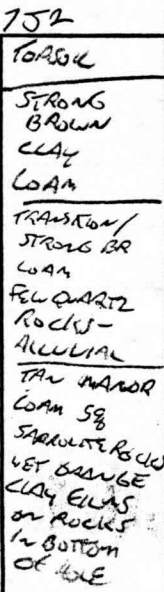 752
TOPSOIL
STRONG
BROWN
CLAY
LOAM
TRANSITION/
STRONG BR
LOAM
FEW QUARTZ
ROCKS-
ALLUVIAL
TAN MANOR
LOAM SG
SAPROLITE ROCKS
WET ORANGE
CLAY FILMS
ON ROCKS
IN BOTTOM
OF HOLE